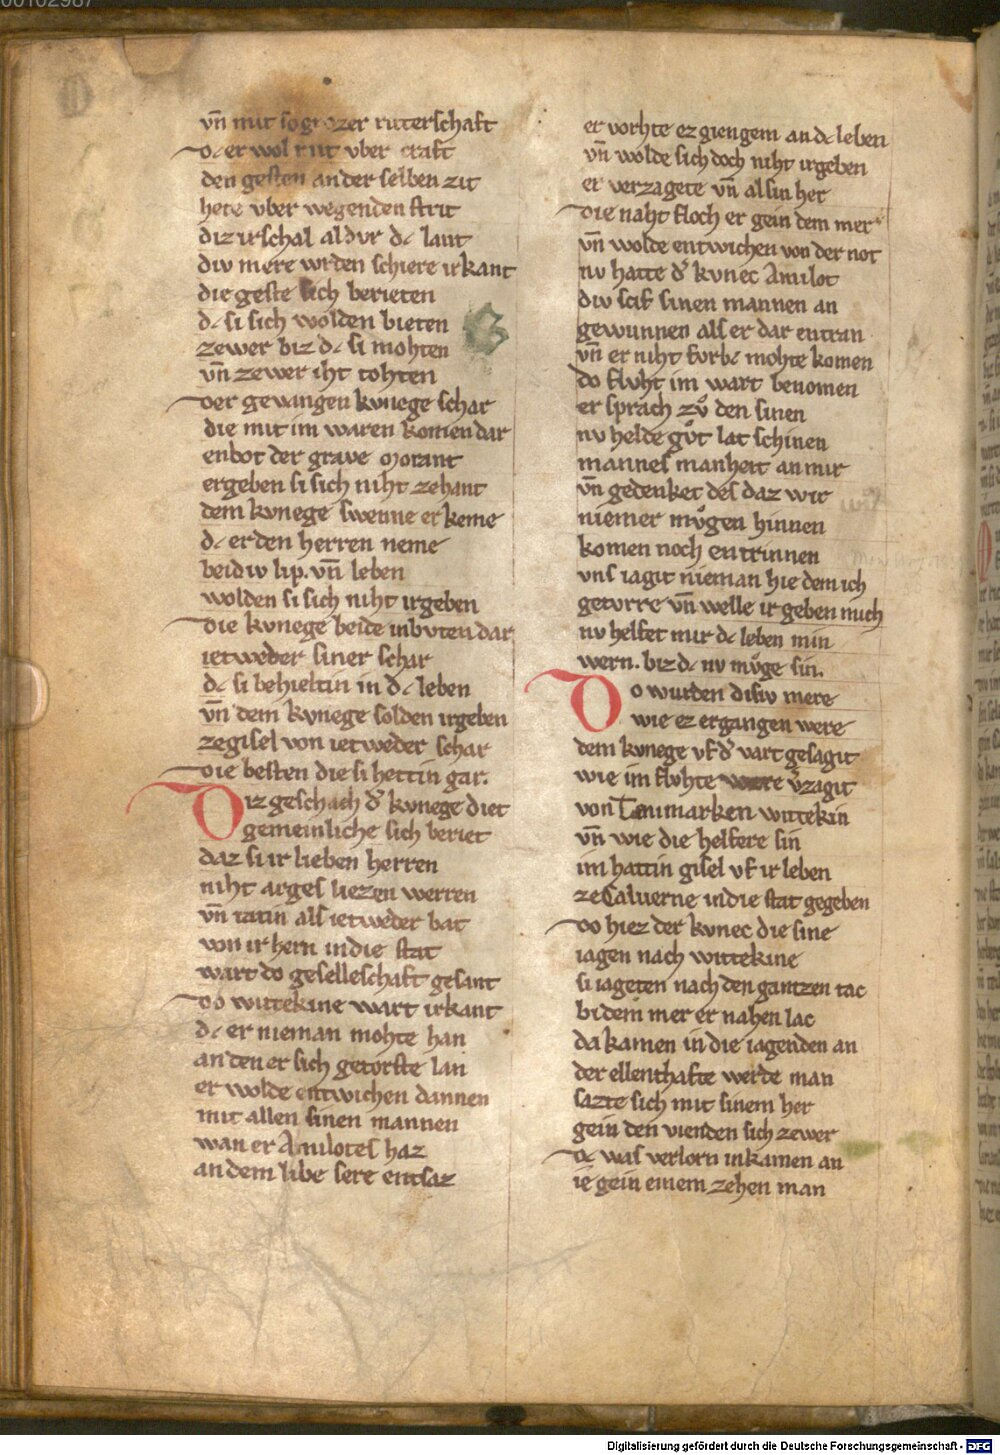 00102987
vn̄ mit so grozer ritterschaft
dc er wol mit vber craft
den gesten an der selben zit
hete vber wegenden strit
diz irschal al dvr dc lant
div mere wrden schiere irkant
die geste sich berieten
dc si sich wolden bieten
zewer biz dc si mohten
vn̄ zewer iht tohten
der gevangen kvnege schar
die mit im waren komen dar
enbot der grave Morant
ergeben si sich niht zehant
dem kvnege swenne er keme
dc er den herren neme
beidiv lip. vn̄ leben
wolden si sich niht irgeben
die kvnege beide inbvten dar
ietweder siner schar
dc si behieltin in dc leben
vn̄ dem kvnege solden irgeben
zegisel von ietweder schar
die besten die si hettin gar.
Diz geschach d̓ kvnege diet
gemeinliche sich beriet
daz si ir lieben herren
niht arges liezen werren
vn̄ tatin als ietweder bat
von ir hern in die stat
wart do geselleschaft gesant
do wittekine wart irkant
dc er nieman mohte han
an den er sich getorste lan
er wolde entwichen dannen
mit allen sinen mannen
wan er Amilotes haz
an dem libe sere entsaz
er vorhte ez giengem an dc leben
vn̄ wolde sich doch niht irgeben
er verzagete vn̄ al sin her
die naht floch er gein dem mer
vn̄ wolde entwichen von der not
nv hatte d̓ kvnec Amilot
div scif sinen mannen an
gewunnen als er dar entran
vn̄ er niht fvrbc mohte komen
do flvht im wart benomen
er sprach zv̊ den sinen
nv helde gv̊t lat schinen
mannes manheit an mir
vn̄ gedenket des daz wir
niemer mv̊gen hinnen
komen noch entrinnen
vns iagit nieman hie dem ich
geturre vn̄ welle irgeben mich
nv helfet mir dc leben min
wern. biz dc nv mv̊ge sin.
Do wurden disiv mere
wie ez ergangen were
dem kvnege vf d̓ vart gesagit
wie im flvhte were v̓zagit
von Tenimarken wittekin
vn̄ wie die helfere sin
im hattin gisel vf ir leben
ze Caluerne in die stat gegeben
do hiez der kvnec die sine
iagen nach wittekine
si iageten nach den gantzen tac
bi dem mer er nahen lac
da kamen in die iagenden an
der ellenthafte werde man
sazte sich mit sinem her
gein den vienden sich zewer
dc was verlorn in kamen an
ie gein einem zehen man
Digitalisierung gefördert durch die Deutsche Forschungsgemeinschaft - DFG